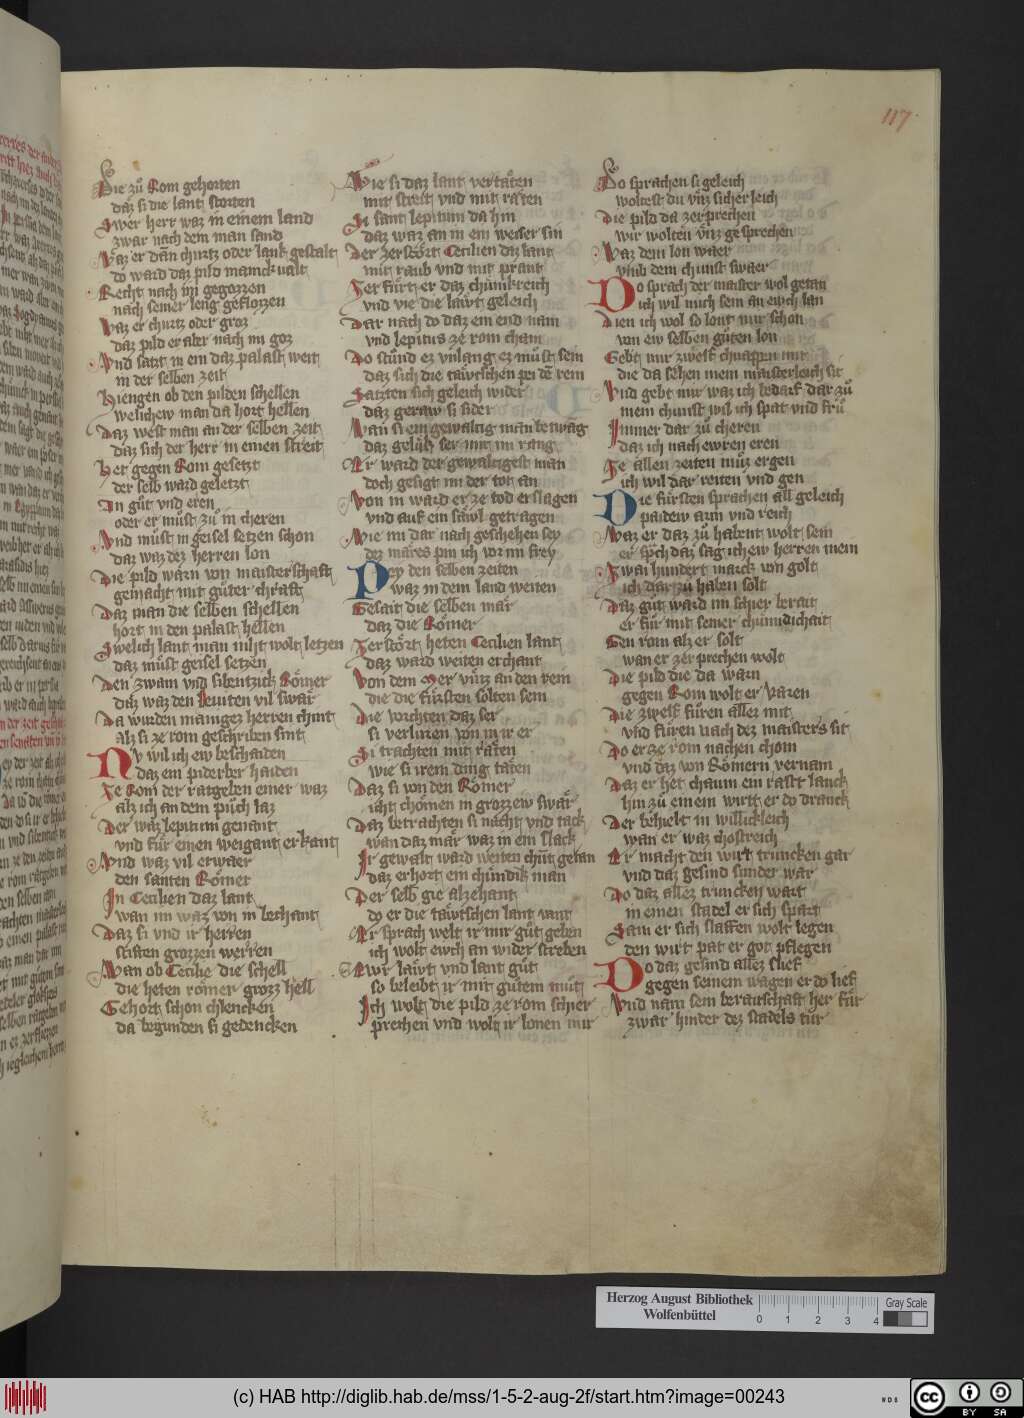 117
Die zů Rom gehorten
daz si die lant storten
Swer herr waz in einem land
zwar nach dem man sand
Waz er dan churtz oder lank gestalt
do ward daz pild manickualt
Recht nach im gegozzen
nach seiner leng geflozzen
Waz er churtz oder groz
daz pild er aber nach im goz
Vnd satzt in ein daz palast weit
in der selben zeit
Hiengen ob den pilden schellen
welichew man da hort hellen
Daz west man an der selben zeit
daz sich der herr in einen streit
Het gegen Rom gesetzt
der selb ward geletzt
In gůt vnd eren
oder er můst zů in cheren
Vnd můst in geisel setzen schon
daz waz dez herren lon
Die pild warn von maisterschaft
gemacht mit gůter chraft
Daz man die selben schellen
hort in den palast hellen
Swelich lant man niht wolt letzen
daz můst geisel setzen
Den zwain vnd sibentzick Römer
daz waz den leuiten vil swär
Da wurden maniger herren chint
alz si ze rom geschriben sint
Nv wil ich ew beschaiden
daz ein piderber haiden
Ze Rom der ratgeben einer waz
alz ich an dem půch laz
Der waz lepitum genant
vnd für einen weigant erkant
Vnd waz vil erwaer
den santen Römer
In Cecilien daz lant
wan im waz von in bechant
Daz si vnd ir herren
stiften grozzen werren
Wan ob Cecilie die schell
die heten römer grozz hell
Gehort schon chlencken
da begunden si gedencken
Wie si daz lant vertäten
mit streit vnd mit räten
Si sant lepitum da hin
daz waz an in ein weiser sin
Der zerstört Cecilien daz lant
mit raub vnd mit prant
Zerfürt er daz chünikreich
vnd vie die läwt geleich
Dar nach do daz ein end nam
vnd lepitus ze rom cham
Do stůnd ez vnlang ez můst sein
daz sich die täwtschen pei dē rein
Satzten sich geleich wider
daz geraw si sider
Wan si ein gewaltig man betwāg
daz gelük ser mit im rang
Er ward der gewaltigest man
doch gesigt im der tot an
Von in ward er ze tod erslagen
vnd auf ein säwl getragen
Wie im dar nach geschehen sey
dez märes pin ich vor im frey
Pey den selben zeiten
waz in dem land weiten
Gesait die selben mär
daz die Römer
Zerstört heten Cecilien lant
daz ward weiten erchant
Von dem Mer vntz an den rein
die die fürsten solten sein
Die vorchten daz ser
si verluren von in ir er
Si trachten mit räten
wie si irem ding täten
Daz si von den Römer
icht chömen in grozzew swär
Daz betrachten si nächt vnd tack
wan daz mär waz in ein slack
Ir gewalt ward weiten chūt getan
daz erhort ein chündik man
Der selb gie alzehant
do er die täwtschen lant vant
Er sprach welt ir mir gůt geben
ich wolt ewch an wider streben
Ewr läwt vnd lant gůt
so beleibt ir mit gůtem můt
Ich wolt die pild ze rom schier
prechen vnd wolt ir lonen mir
Do sprachen si geleich
woltest du vntz sicherleich
Die pild da zerprechen
wir wolten vntz gesprechen
Waz dem lon waer
vmb dem chunst swaer
Do sprach der maister wol getan
ich wil mich sein an ewch lan
Dien ich wol so lont mir schon
von ew selben gůten lon
Gebt mir zwelf chnappen mit
die da sehen mein maisterleich sit
Vnd gebt mir waz ich bedarf dar zů
mein chunst wil ich spat vnd frů
Immer dar zů cheren
daz ich nach ewren eren
Ze allen zeiten můz ergen
ich wil dar reiten vnd gen
Die fürsten sprachen all geleich
paidew arm vnd reich
Waz er daz zů habent wolt sein
er spch daz sag ich ew herren mein
Zwaihundert marck von golt
ich dar zů haben solt
Daz gůt ward im schier berait
er fůr mit seiner chündichait
Gen rom alz er solt
wan er zerprechen wolt
Die pild die da warn
gegen Rom wolt er varen
Die zwelf fůren allez mit
vnd fůren nach dez maisters sit
Do er ze rom nachen chom
vnd daz von Römern vernam
Daz er het chaum ein rast lanck
hin zů einem wirtt er do dranck
Der behielt in willickleich
wan er waz chostreich
Er macht den wirt truncken gar
vnd daz gesind sunder war
Do daz allez truncken wart
in einen stadel er sich spart
Sam er sich slaffen wolt legen
den wirt pat er got pflegen
Do daz gesind allez slief
gegen seinem wagen er do lief
Vnd nam sein beraitschaft her für
zwar hinder dez stadels tür
Herzog August Bibliothek
Wolfenbüttel
0 1 2 3 4
Gray Scale
(c) HAB http://diglib.hab.de/mss/1-5-2-aug-2f/start.htm?image=00243
cc BY SA